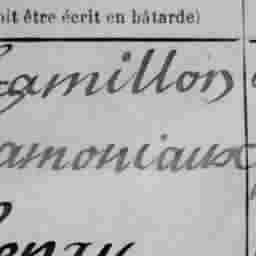 oit être écrit en bâtarde)
Camillon
amoniaux
enry